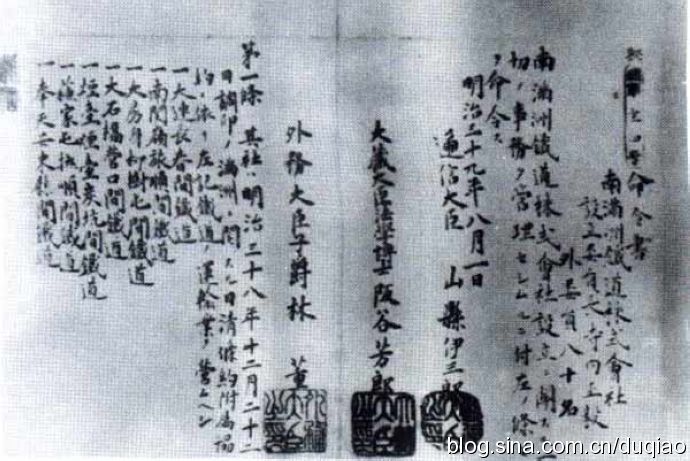 命令書
南滿洲鐵道株式會社
設立委員長寺内正毅
外委員八十名
南滿洲鐵道株式會社設立ニ關スル一
切ノ事務ヲ管理セシムルニ付左ノ條
ヲ命令ス
明治三十九年八月一日
遞信大臣 山縣伊三郎
大藏大臣法學博士 阪谷芳郎
外務大臣子爵林 董
第一條 其社ハ明治三十八年十二月二十二
日調印ノ滿洲ニ關スル日清條約附屬協
約ニ依リ左記鐵道ノ運輸業ヲ營ムヘシ
一大連長春間鐵道
一南關嶺旅順間鐵道
一大房身柳樹屯間鐵道
一大石橋營口間鐵道
一煙臺煙臺炭坑間鐵道
一蘇家屯撫順間鐵道
一奉天安東縣間鐵道
blog.sina.com.cn/duqiao